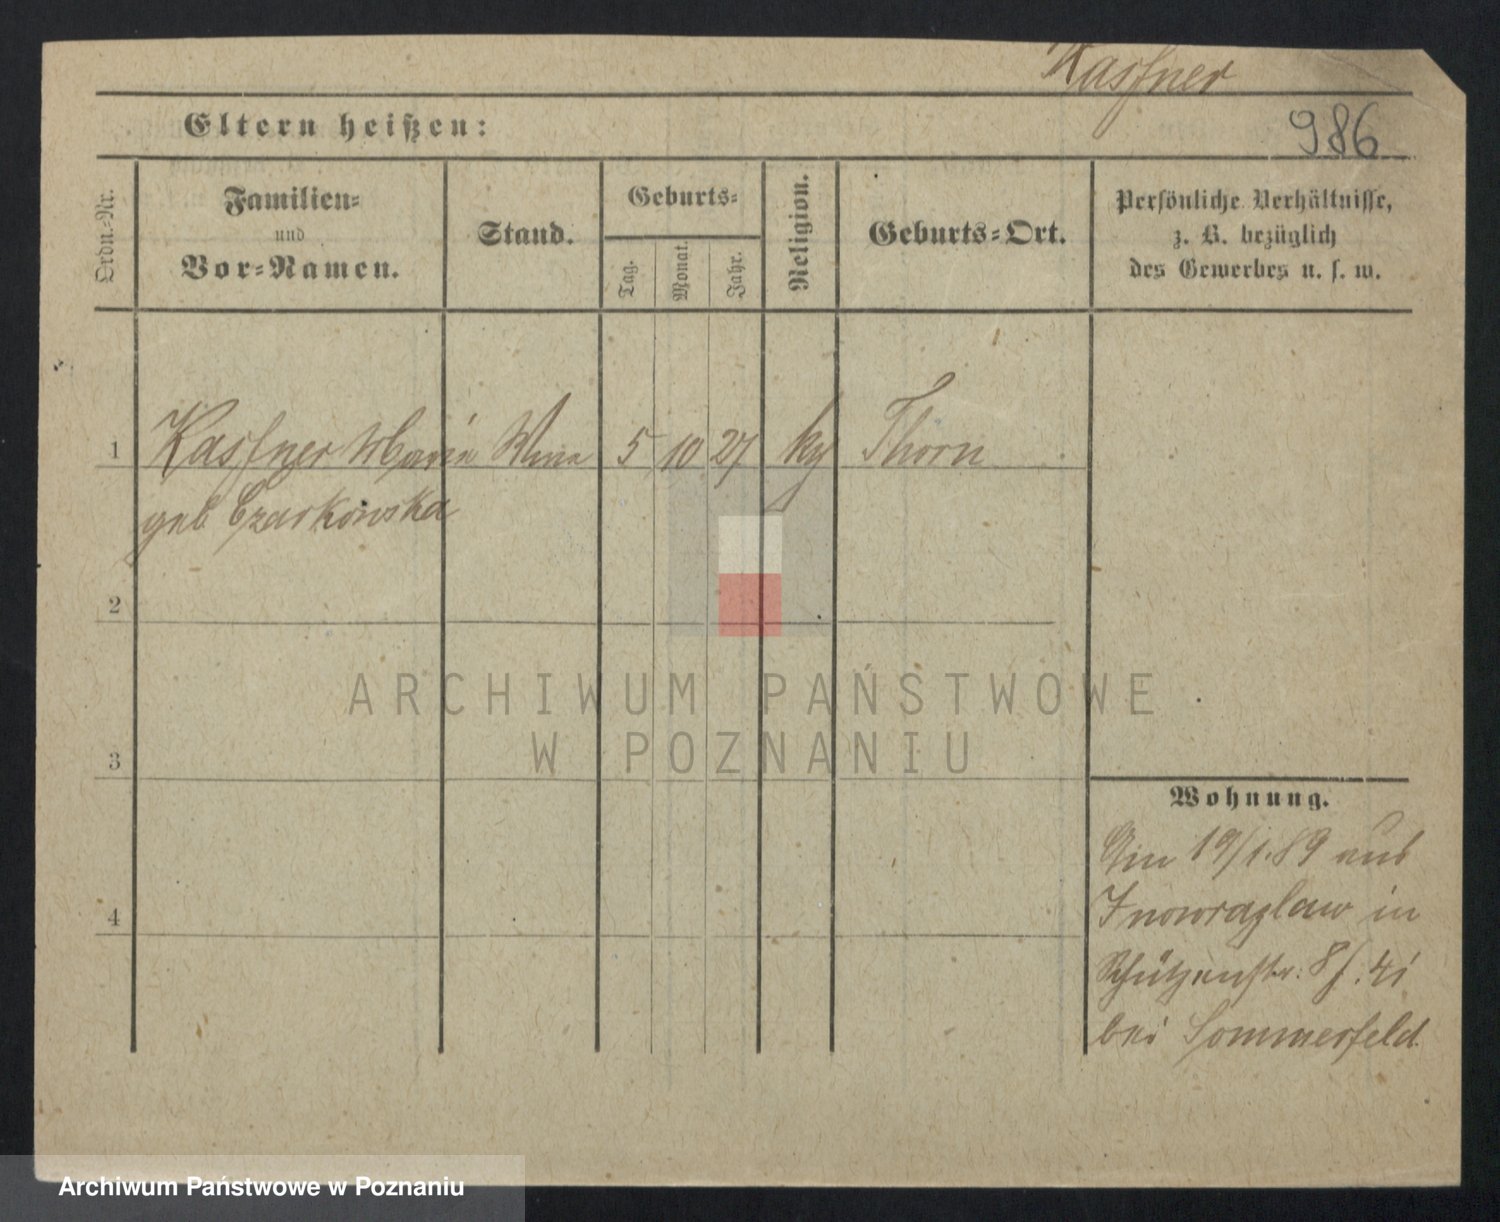 Kassner
Eltern heißen:
986
Ordn.-Nr.
Familien-
und
Vor-Namen.
Stand.
Geburts-
Tag.
Monat.
Jahr.
Religion.
Geburts-Ort.
Persönliche Verhältnisse,
z. B. bezüglich
des Gewerbes u. s. w.
1 Kassner Marie Wwe 5 10 27 Thorn
geb Czarkowska
2
ARCHIWUM PAŃSTWOWE
W POZNANIU
3
Wohnung.
4
Am 19/1.89 aus
Inowrazlaw in
Schützenstr. 8
bei Sommerfeld
Archiwum Państwowe w Poznaniu